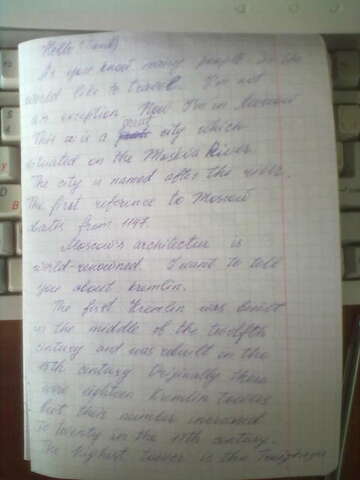 Hello (Sand)
As you know many people in the
world like to travel. I'm not
an exception. Now I'm in Moscow
This is a great city which
situated on the Moskva River.
The city is named after the river.
The first reference to Moscow
dates from 1147.
Moscow's architecture is
world-renowned. I want to tell
you about kremlin.
The first Kremlin was built
in the middle of the twelfth
century and was rebuilt in the
15th century. Originally there
were eighteen Kremlin towers
but their number increased
to twenty in the 17th century.
The highest tower is the